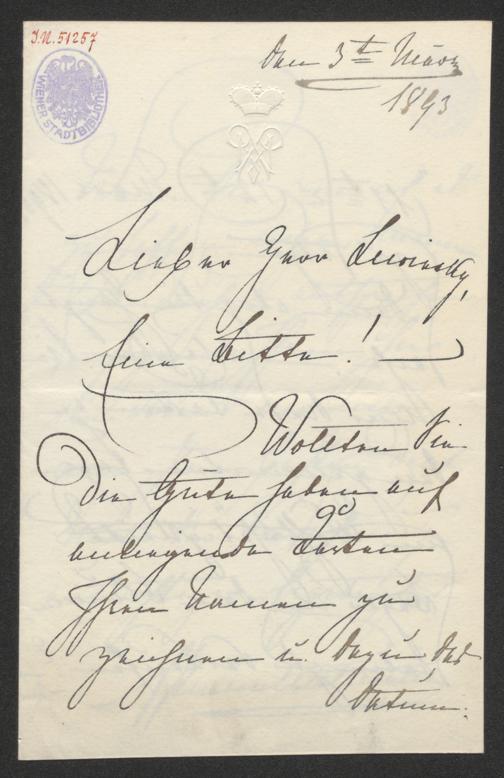 J.N. 51257
WIENER STADTBIBLIOTHEK
den 3ten März
1893
Lieber Herr Lewinsky,
Eine Bitte! —
Wollten Sie
die Güte haben auf
anliegende Karten
Ihren Namen zu
zeichnen u. dazu das
Datum.